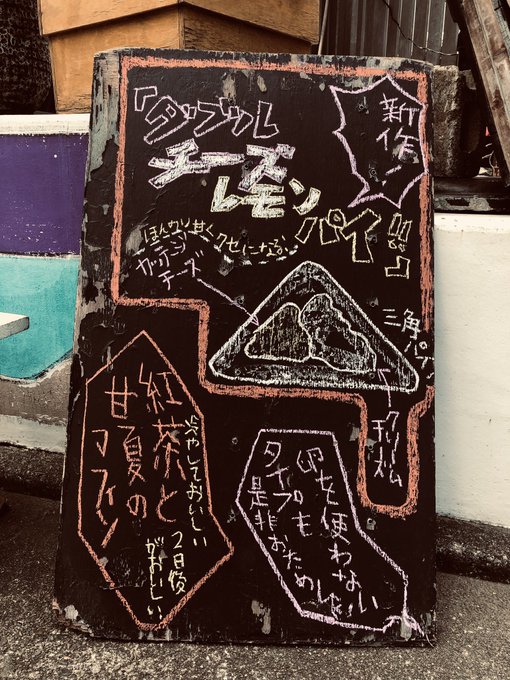 新作!
「ダブル
チーズ
レモン
パイ!!」
ほんのり甘くクセになる。
カッテージ
チーズ
三角パイ
クリーム
紅茶と
甘夏の
マフィン
冷やしておいしい
2日後
がおいしい
卵を使わない
タイプも
是非おためし